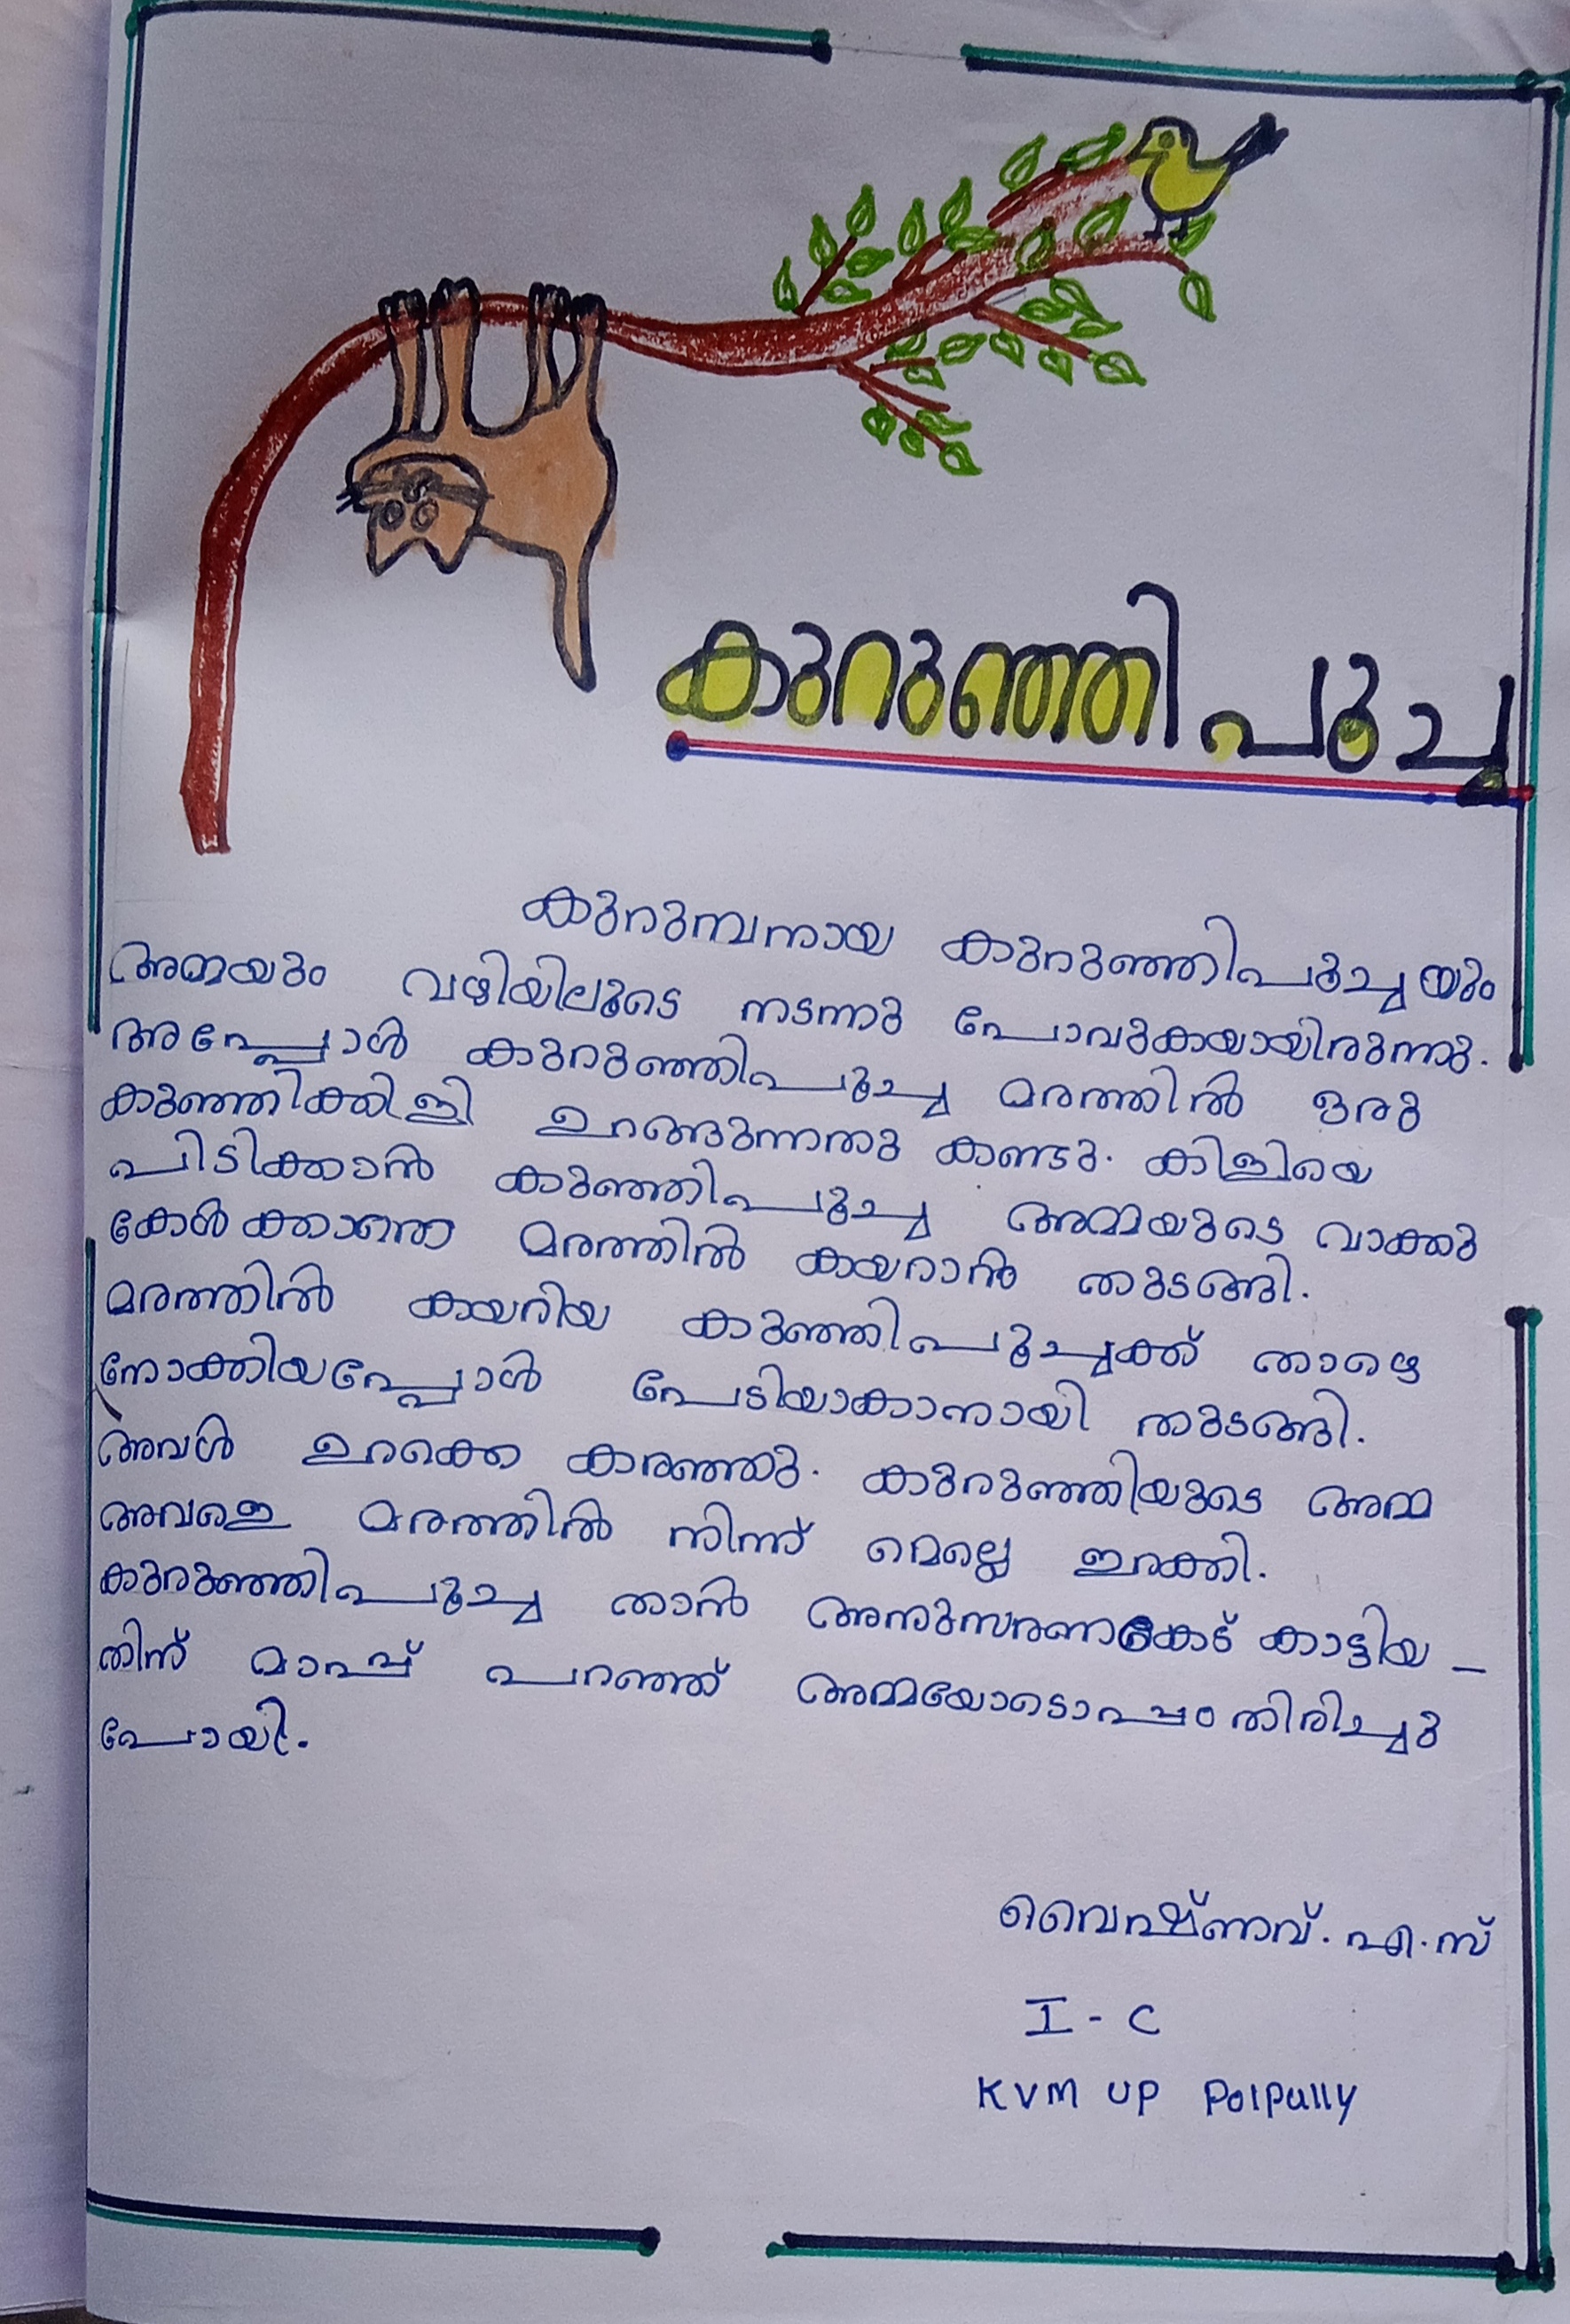 കുറുഞ്ഞി പൂച്ച
കുറുമ്പനായ കുറുഞ്ഞിപൂച്ചയും
അമ്മയും വഴിയിലൂടെ നടന്നു പോവുകയായിരുന്നു.
അപ്പോൾ കുറുഞ്ഞിപൂച്ച മരത്തിൽ ഒരു
കുഞ്ഞിക്കിളി ഉറങ്ങുന്നതു കണ്ടു. കിളിയെ
പിടിക്കാൻ കുഞ്ഞിപൂച്ച അമ്മയുടെ വാക്കു
കേൾക്കാതെ മരത്തിൽ കയറാൻ തുടങ്ങി.
മരത്തിൽ കയറിയ കുഞ്ഞിപൂച്ചക്ക് താഴെ
നോക്കിയപ്പോൾ പേടിയാകാനായി തുടങ്ങി.
അവൾ ഉറക്കെ കരഞ്ഞു. കുറുഞ്ഞിയുടെ അമ്മ
അവളെ മരത്തിൽ നിന്ന് മെല്ലെ ഇറക്കി.
കുറുഞ്ഞിപൂച്ച താൻ അനുസരണക്കേട് കാട്ടിയ -
തിന് മാപ്പ് പറഞ്ഞ് അമ്മയോടൊപ്പം തിരിച്ചു
പോയി.
വൈഷ്ണവ്. എ. സ്
I - C
KVM UP Polpully